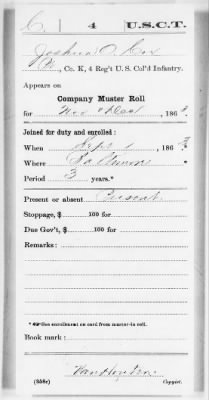 C. 4 U.S.C.T.
Joshua O. Cox
Co. K, 4 Reg't U. S. Col'd Infantry.
Appears on
Company Muster Roll
for Nov & Dec, 1863.
Joined for duty and enrolled:
When Sept 1, 1863
Where Baltimore
Period 3 years.*
Present or absent Present
Stoppage, $ 100 for
Due Gov't, $ 100 for
Remarks:
* See enrollment on card from muster-in roll.
Book mark:
(358c) Copyist.